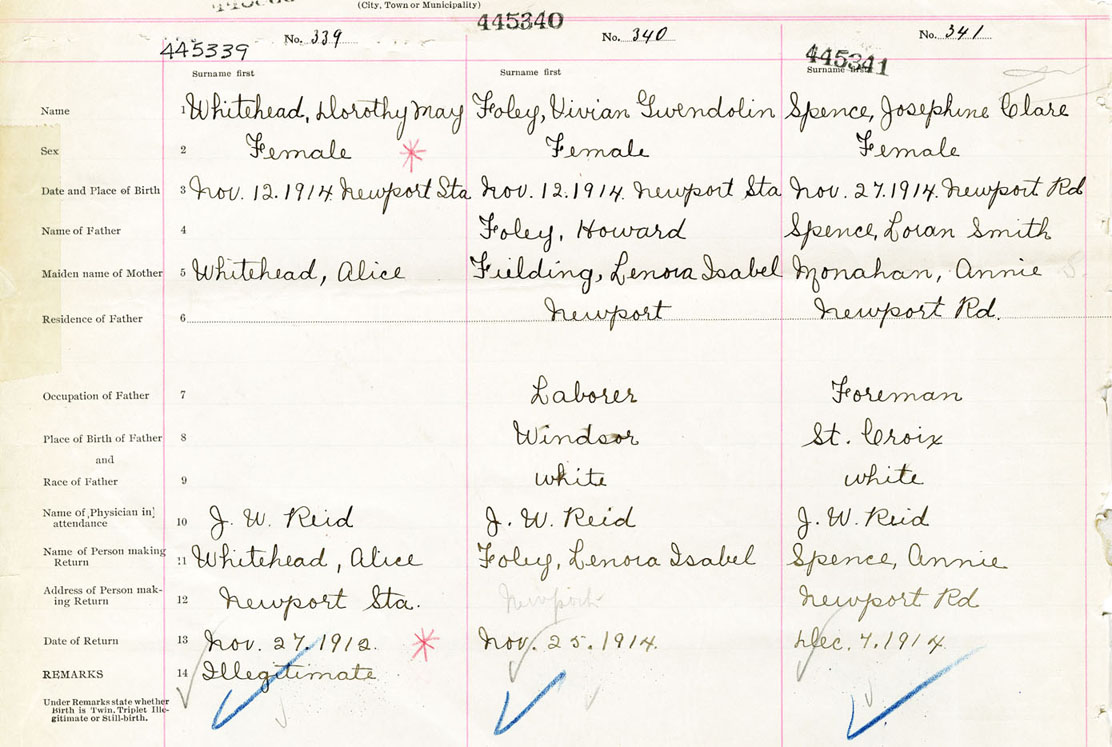 (City, Town or Municipality)
445339 No. 339 445340 No. 340 No. 341 445341
Surname first Surname first Surname first
Name 1 Whitehead, Dorothy May Foley, Vivian Gwendolin Spence, Josephine Clare
Sex 2 Female Female Female
Date and Place of Birth 3 Nov. 12. 1914. Newport Sta Nov. 12. 1914. Newport Sta Nov. 27. 1914. Newport Rd
Name of Father 4 Foley, Howard Spence, Loran Smith
Maiden name of Mother 5 Whitehead, Alice Fielding, Lenora Isabel Monahan, Annie
Residence of Father 6 Newport Newport Rd.
Occupation of Father 7 Laborer Foreman
Place of Birth of Father 8 Windsor St. Croix
and
Race of Father 9 white white
Name of Physician in attendance 10 J. W. Reid J. W. Reid J. W. Reid
Name of Person making Return 11 Whitehead, Alice Foley, Lenora Isabel Spence, Annie
Address of Person making Return 12 Newport Sta. Newport Newport Rd
Date of Return 13 Nov. 27. 1912. Nov. 25. 1914. Dec. 7. 1914.
REMARKS 14 Illegitimate
Under Remarks state whether
Birth is Twin, Triplet Ille-
gitimate or Still-birth.